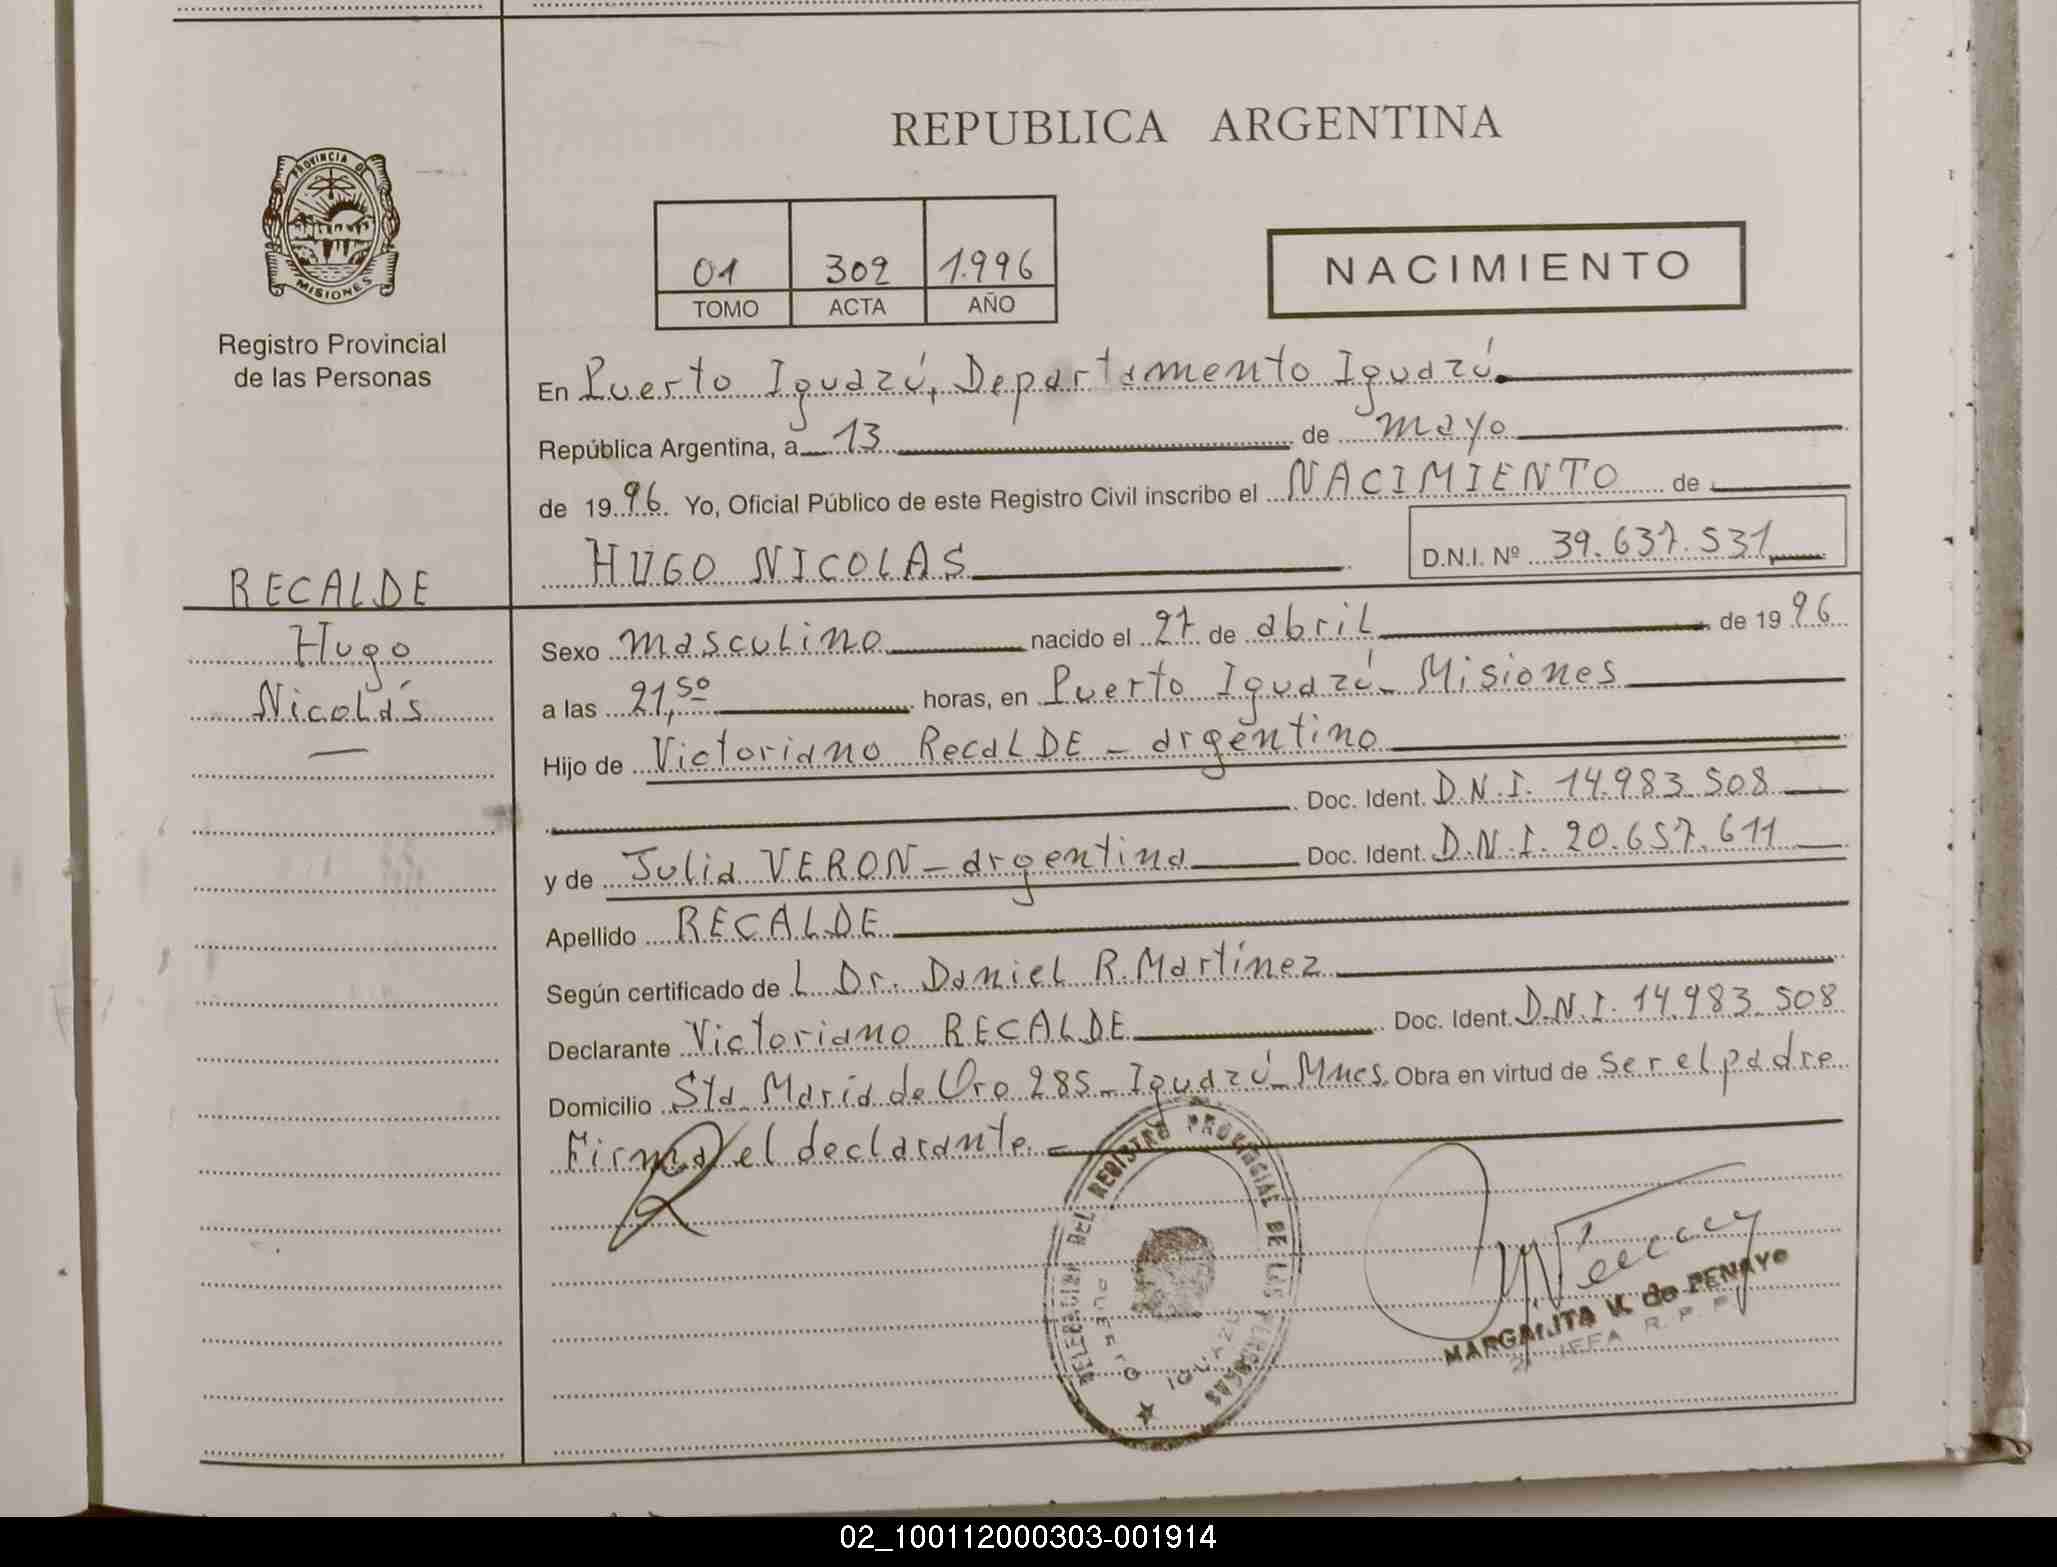 REPUBLICA ARGENTINA
PROVINCIA DE
MISIONES
Registro Provincial
de las Personas
01 302 1.996
TOMO ACTA AÑO
NACIMIENTO
En Puerto Iguazú, Departamento Iguazú.
República Argentina, a 13 de mayo
de 1996. Yo, Oficial Público de este Registro Civil inscribo el NACIMIENTO de
HUGO NICOLAS D.N.I. Nº 39.637.531
RECALDE
Hugo
Nicolás
Sexo masculino nacido el 27 de abril de 1996
a las 21,50 horas, en Puerto Iguazú - Misiones
Hijo de Victoriano RecaLDE - argentino
Doc. Ident. D.N.I. 14.983.508
y de Julia VERON - argentina Doc. Ident. D.N.I. 20.657.611
Apellido RECALDE
Según certificado de L Dr. Daniel R. Martínez
Declarante Victoriano RECALDE Doc. Ident. D.N.I. 14.983.508
Domicilio Sta. María de Oro 285 - Iguazú - Mnes. Obra en virtud de ser el padre
Firma el declarante. -
DELEGACION DEL REGISTRO PROVINCIAL DE LAS PERSONAS
PUERTO IGUAZU
MARGARITA V. de PENAYO
JEFA R. P. P.
02_100112000303-001914